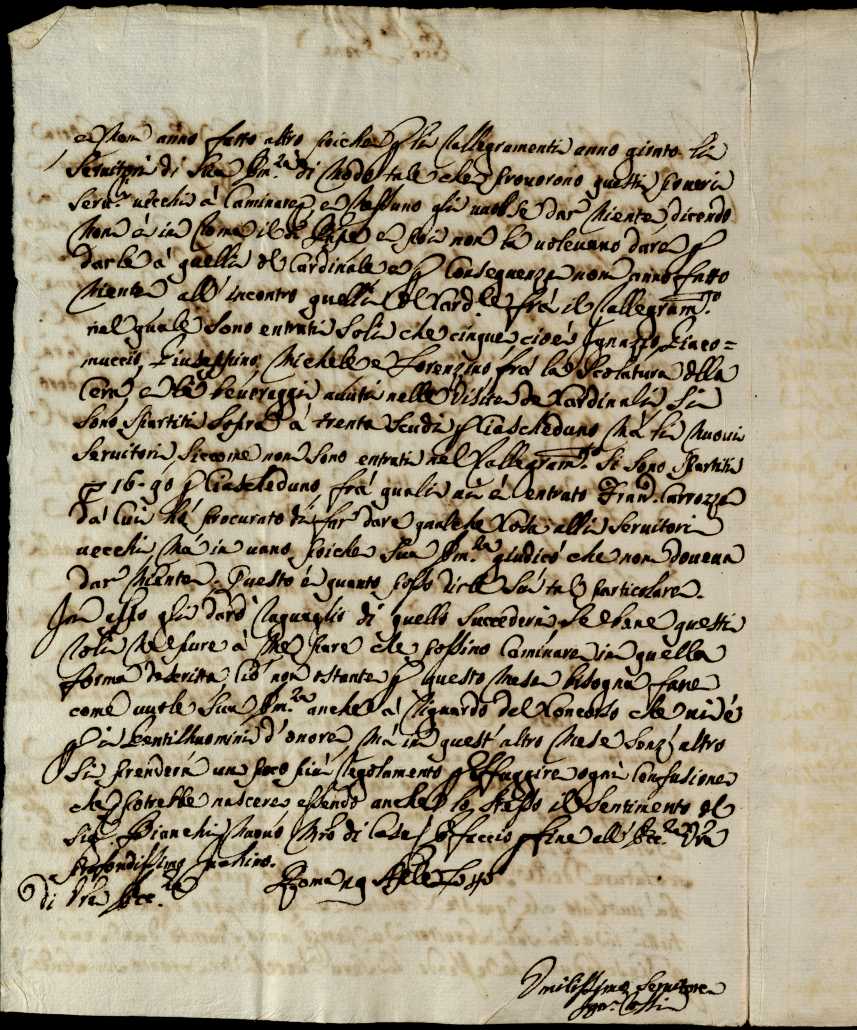 e non anno fatto altro poiche p li rallegramenti anno girato li
Servitori di Sua Em.za di Modo tale che provorono questi poveri
Serv.ri vecchi à Caminare, e nessuno gli volse dar Niente, dicendo
Non è in Roma il Papa e poi non le volevano dare p
darle à quelli del Cardinale e p Conseguenza non anno fatto
Niente all' incontro quelli del Card.le frà il Rallegram.to
nel quale Sono entrati Soli che cinque cioè Ignazio, Giaco=
muccio, Giuseppino, Michele e Lorenzino frà la Scolatura della
Cera, e le beveraggi avuti nelle Visite de Cardinali Si
Sono Spartiti Sopra à trenta Scudi p Ciascheduno Mà li Nuovi
Servitori, siccome non Sono entrati nel Rallegram.to Si Sono Spartiti
16-90 p Ciascheduno frà quali vi è entrato Fran.co Carrozza
da Lui Hà procurato di far dare qualche Cosa alli Servitori
vecchi, Mà in vano poiche Sua Em.za giudicò che non doveva
dar Niente. Questo è quanto posso dirle Sù tal particolare.
In appo gli darò raguaglio di quello Succederà, Sebene questi
Roli Neppure à Me pare che possino Caminare in quella
forma descritta Ciò non ostante p questo Mese bisogna fare
come vuole Sua Em.za anche à riguardo del Concorso che vi è
p i Gentilhuomini d'onore, Mà in quest' altro Mese Senz' altro
Si prenderà un poco più regolamento p Effuggire ogni Confusione
che potrebbe nascere, essendo anche lo Stesso il Sentimento del
Sig.r Bianchi Nuovo Mro di Casa, e faccio p fine all' Ecc.za Vra
profondissimo inchino.
Di Vra Ecc.za Roma 19 Aple 1775
Umilissimo Servitore